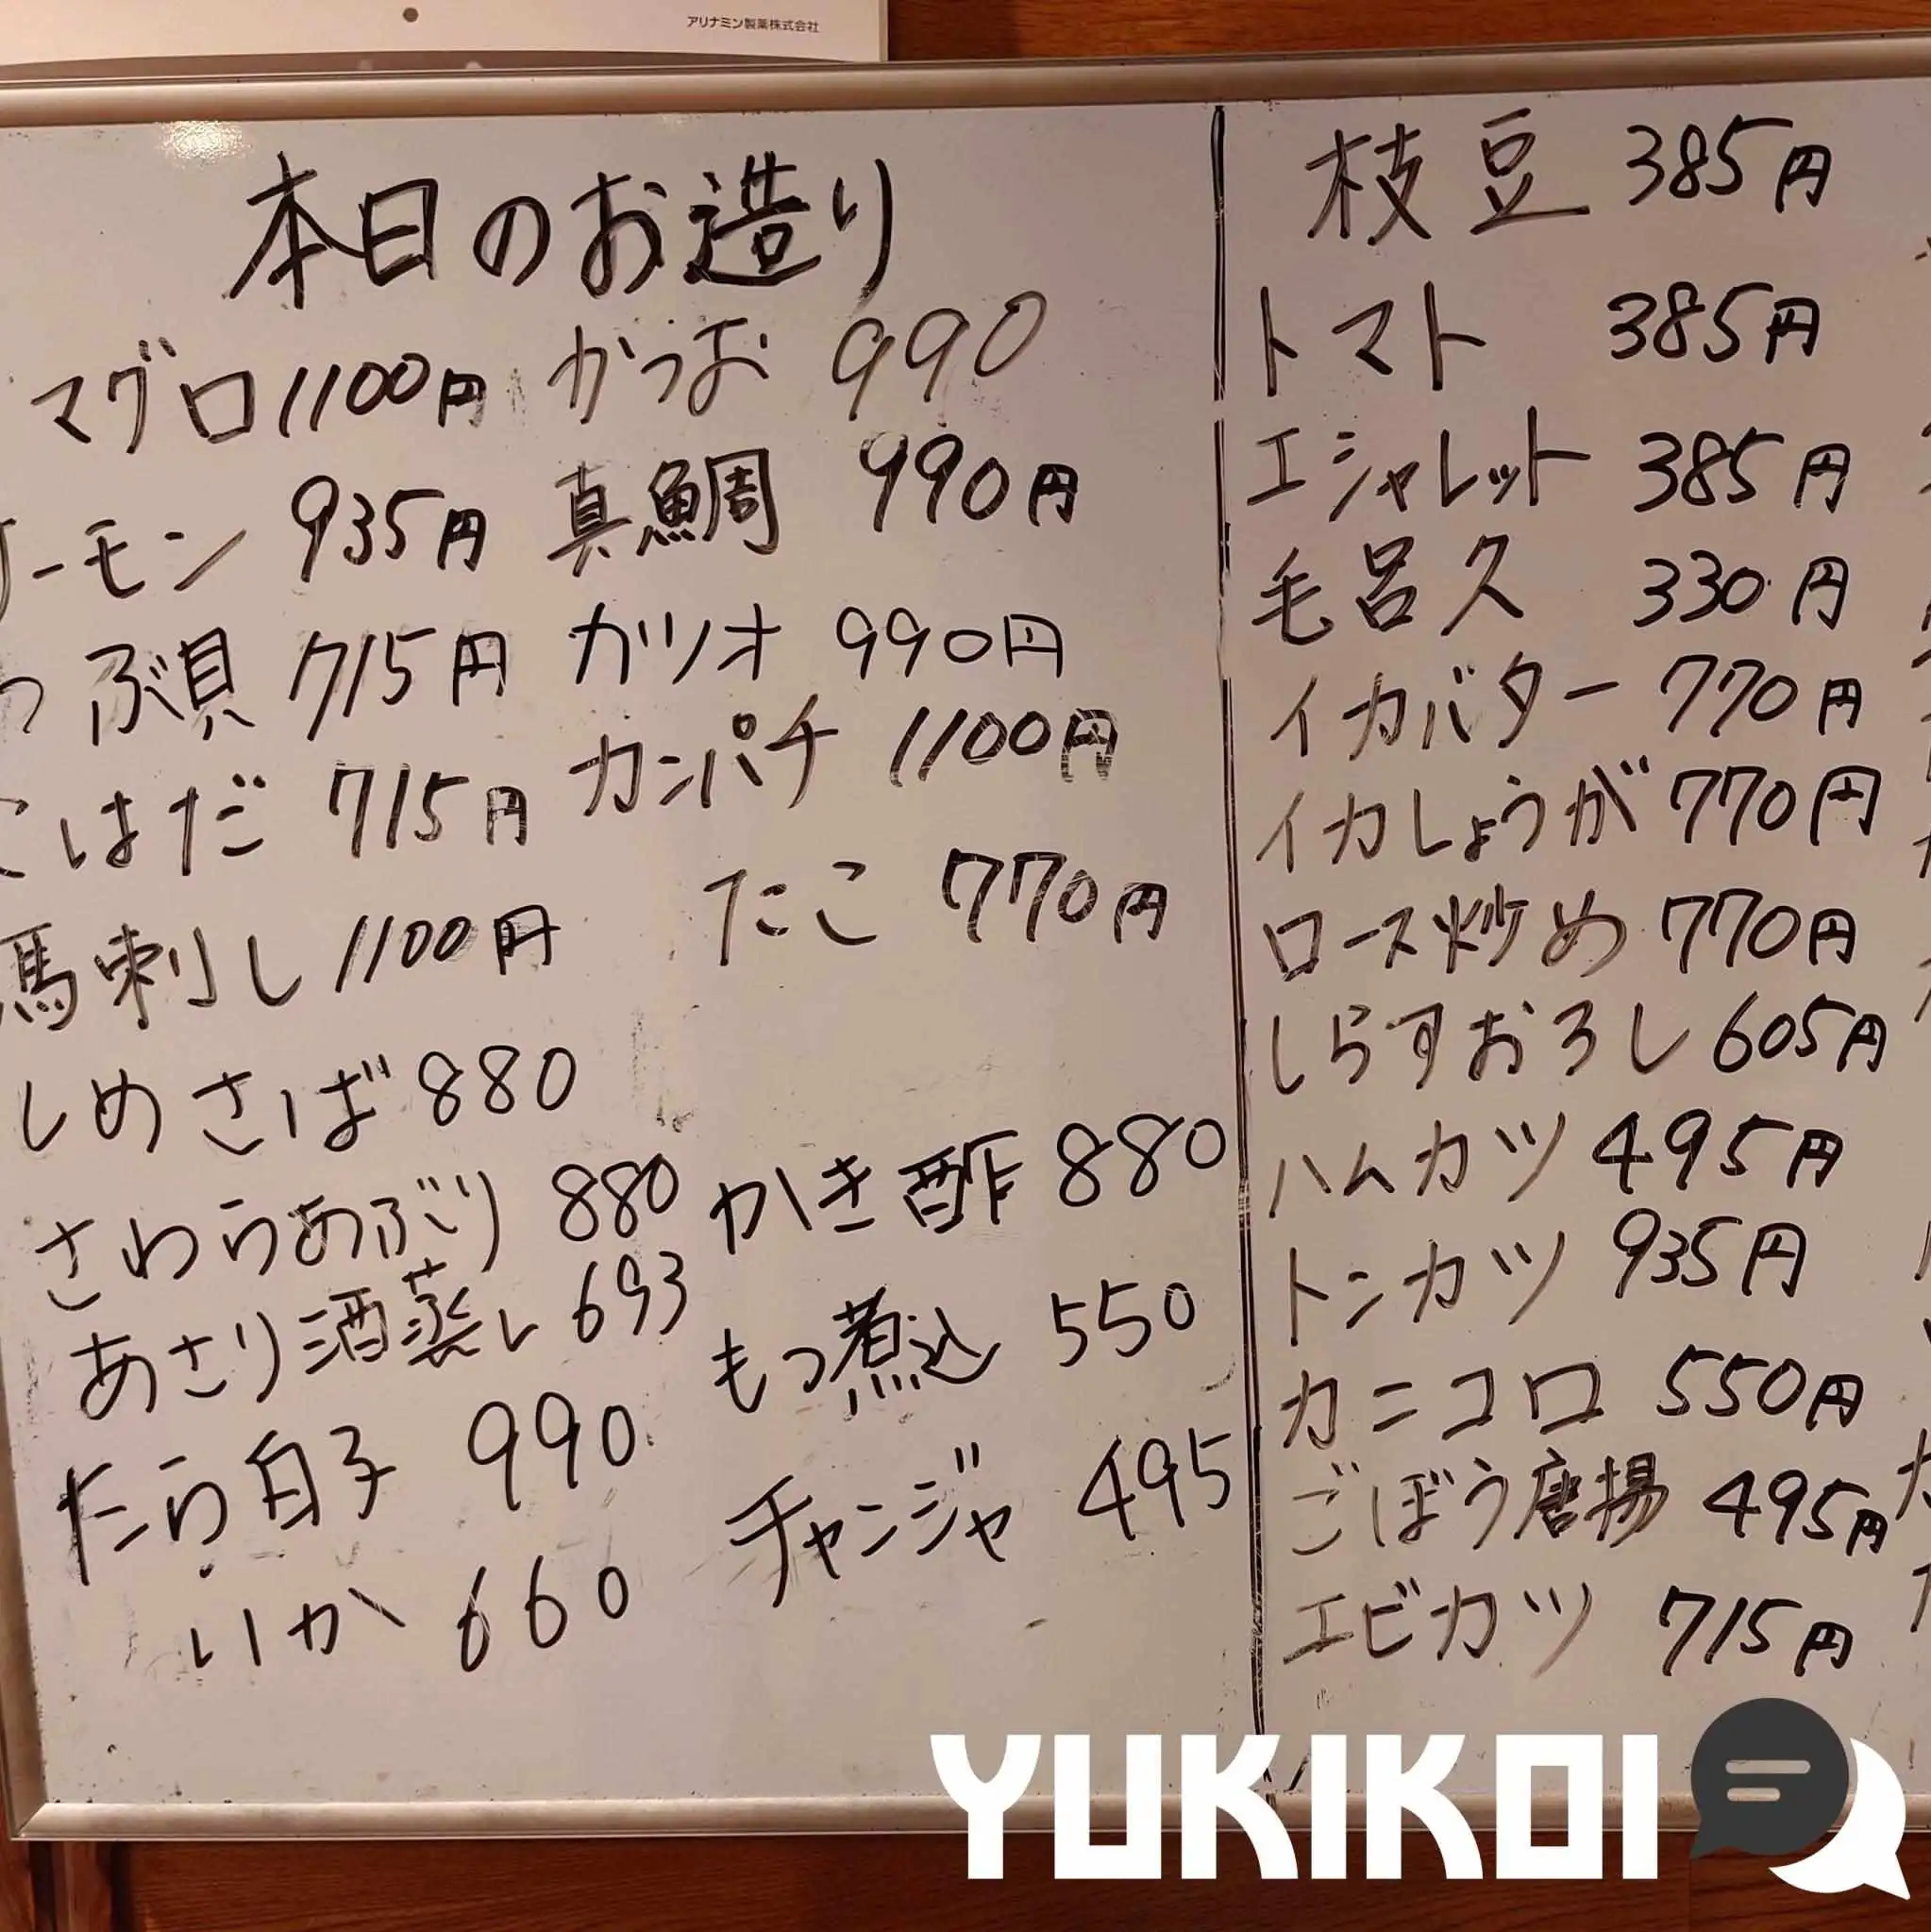 アリナミン製薬株式会社
本日のお造り
マグロ 1100円
ーモン 935円
つぶ貝 715円
こはだ 715円
馬刺し 1100円
しめさば 880
さわらあぶり 880
あさり酒蒸し 693
たら白子 990
いか 660
かつお 990
真鯛 990円
カツオ 990円
カンパチ 1100円
たこ 770円
かき酢 880
もつ煮込 550
チャンジャ 495
枝豆 385円
トマト 385円
エシャレット 385円
毛呂久 330円
イカバター 770円
イカしょうが 770円
ロース炒め 770円
しらすおろし 605円
ハムカツ 495円
トンカツ 935円
カニコロ 550円
ごぼう唐揚 495円
エビカツ 715円
YUKIKOI